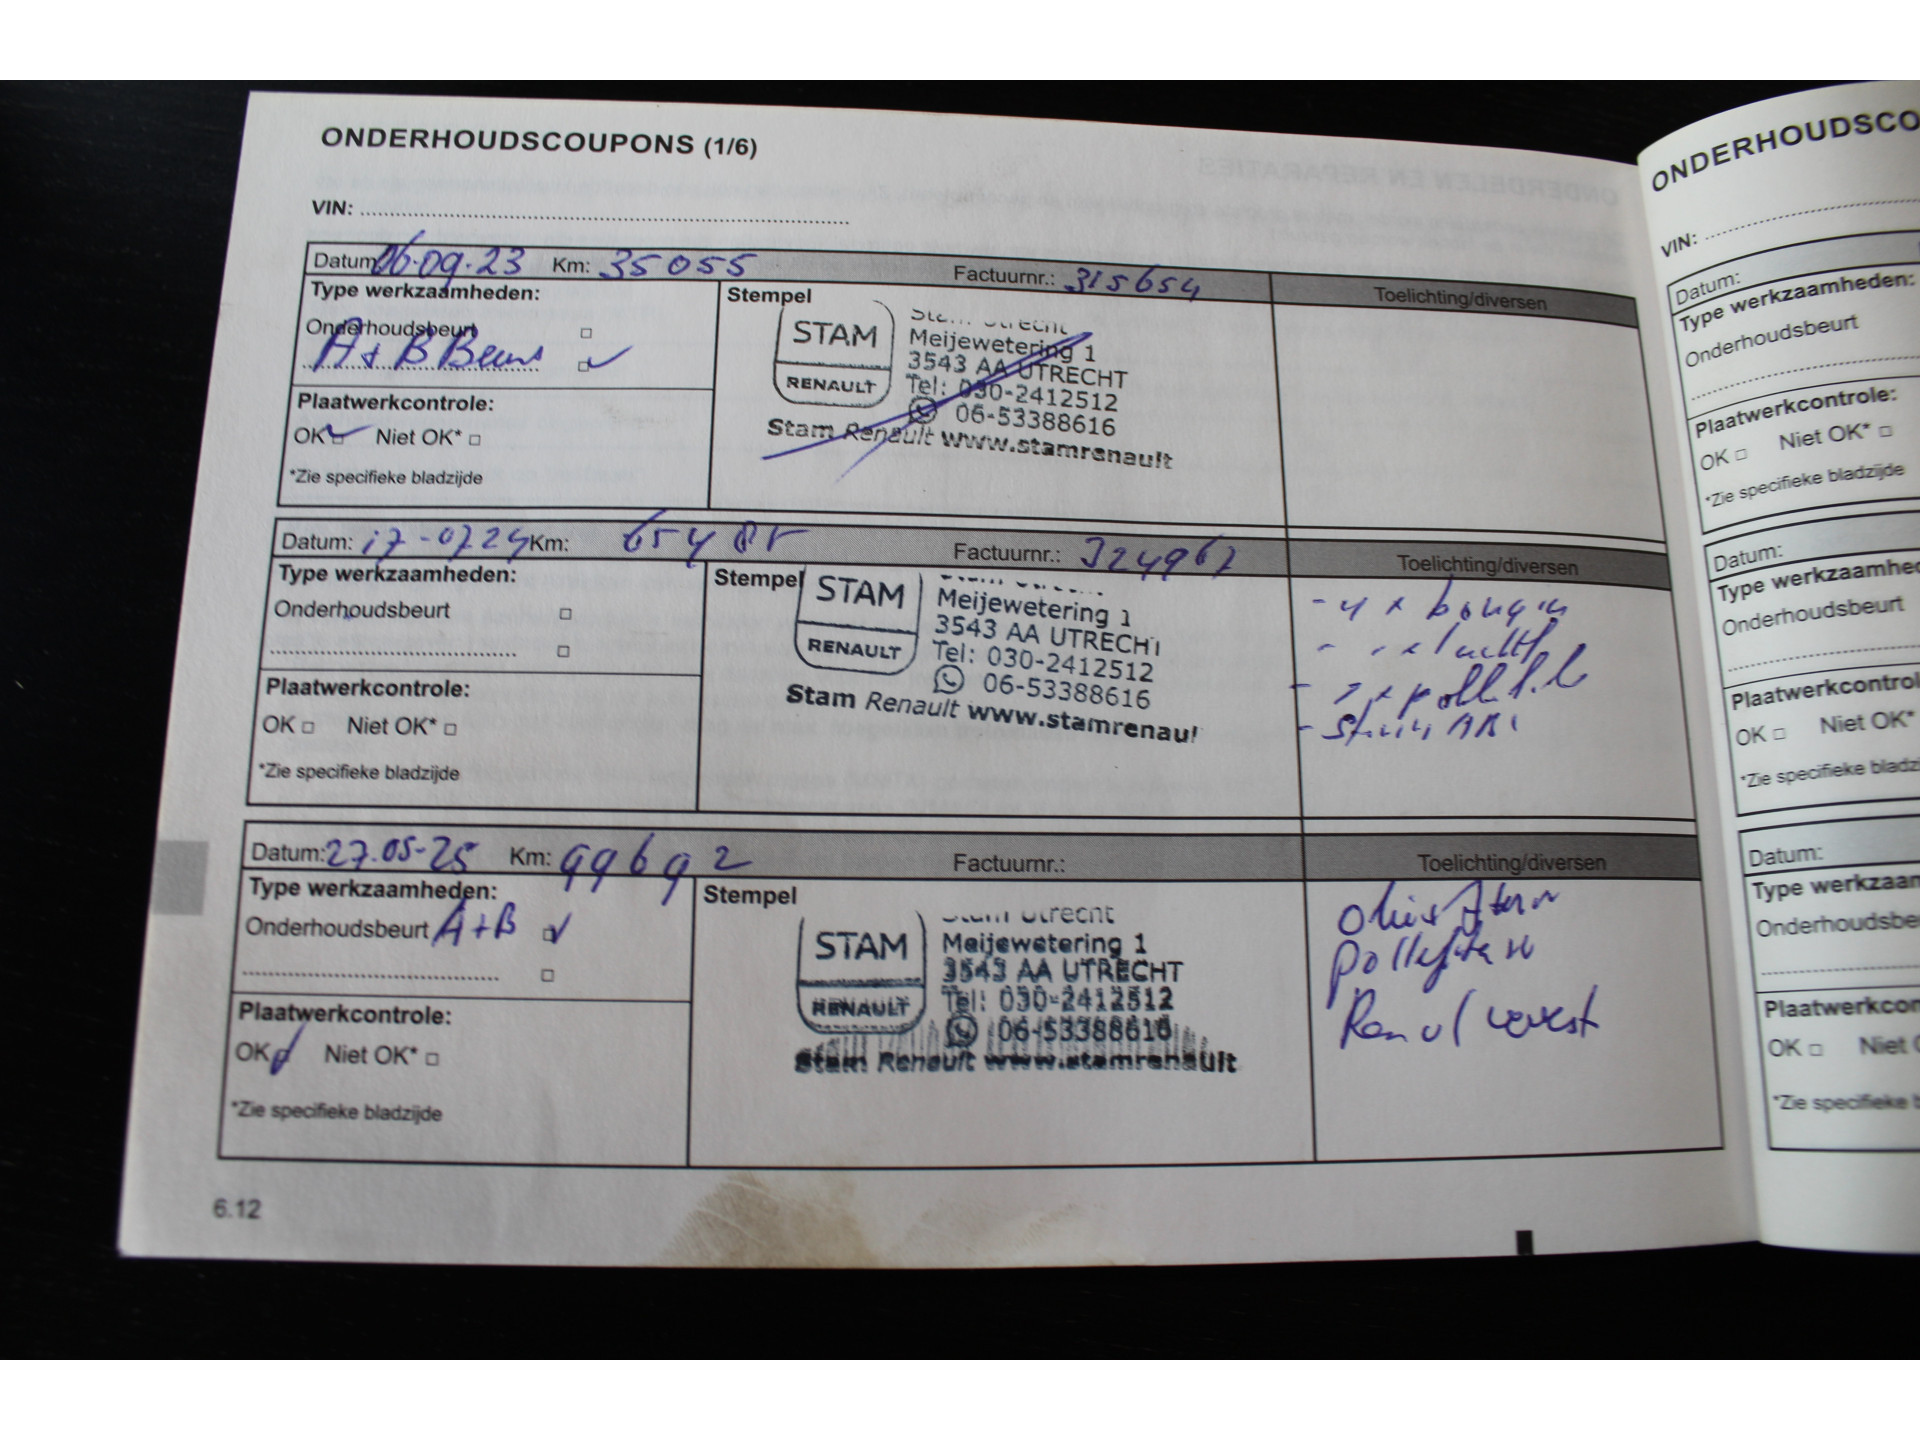 ONDERHOUDSCOUPONS (1/6)
VIN:
Datum: 06-09-23 Km: 35055 Factuurnr.: 315654 Toelichting/diversen
Type werkzaamheden:
Onderhoudsbeurt
A + B Beurt
Plaatwerkcontrole:
OK Niet OK*
*Zie specifieke bladzijde
Stempel
STAM
RENAULT
Utrecht
Meijewetering 1
3543 AA UTRECHT
Tel: 030-2412512
06-53388616
Stam Renault www.stamrenault
Datum: 17-0724 Km: Factuurnr.: Toelichting/diversen
Type werkzaamheden:
Onderhoudsbeurt
Plaatwerkcontrole:
OK Niet OK*
*Zie specifieke bladzijde
Stempel
STAM
RENAULT
Meijewetering 1
3543 AA UTRECHT
Tel: 030-2412512
06-53388616
Stam Renault www.stamrenaul
- 4 x bougin
Datum: 27-05-25 Km: 99692 Factuurnr.: Toelichting/diversen
Type werkzaamheden:
Onderhoudsbeurt A+B
Plaatwerkcontrole:
OK Niet OK*
*Zie specifieke bladzijde
Stempel
STAM
RENAULT
Stam Utrecht
Meijewetering 1
3543 AA UTRECHT
Tel: 030-2412512
06-53388616
Stam Renault www.stamrenault
6.12
ONDERHOUDSCO
VIN:
Datum:
Type werkzaamheden:
Onderhoudsbeurt
Plaatwerkcontrole:
OK Niet OK*
*Zie specifieke bladzijde
Datum:
Type werkzaamhe
Onderhoudsbeurt
Plaatwerkcontrol
OK Niet OK*
*Zie specifieke bladz
Datum:
Type werkzaam
Onderhoudsbe
Plaatwerkcon
OK Niet
*Zie specifieke